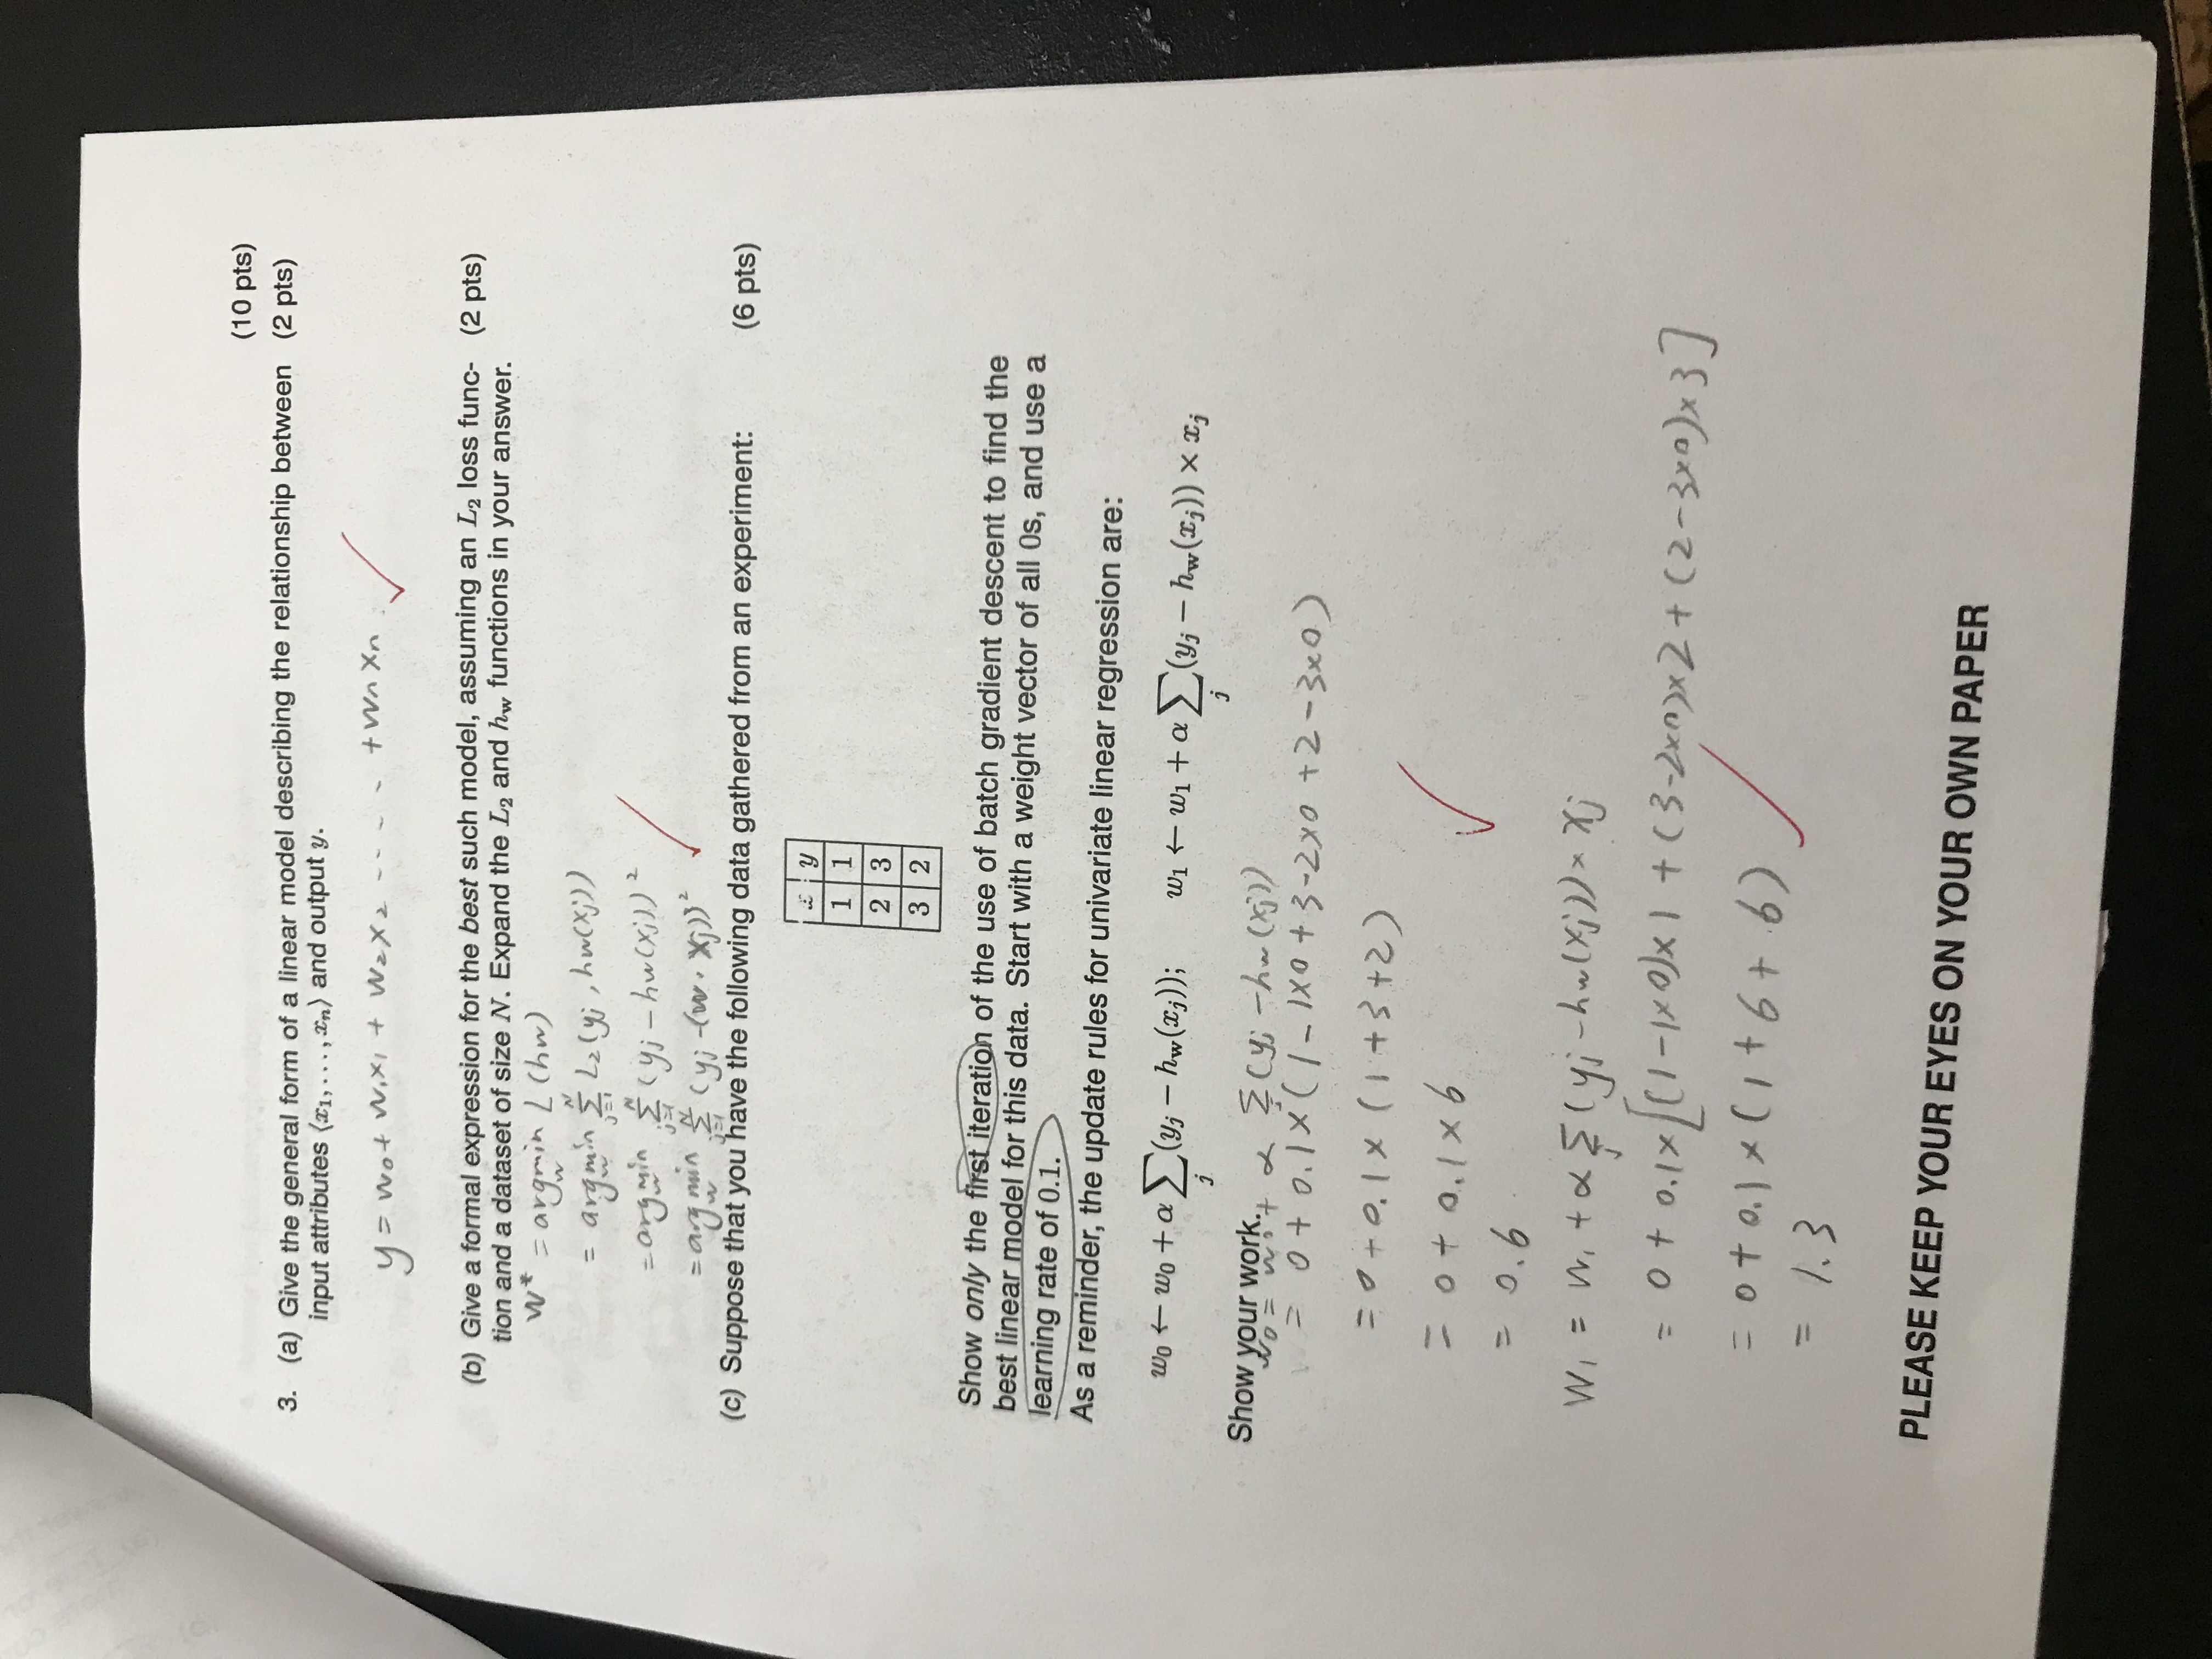 (10 pts)
3. (a) Give the general form of a linear model describing the relationship between (2 pts)
input attributes ⟨x₁, . . . , xₙ⟩ and output y.
y = w₀ + w₁x₁ + w₂x₂ - - - - + wₙxₙ
(b) Give a formal expression for the best such model, assuming an L₂ loss func- (2 pts)
tion and a dataset of size N. Expand the L₂ and h_w functions in your answer.
w* = argmin_w L(hw)
= argmin_w Σ_{j=1}^{N} L₂(yj, hw(xj))
= argmin_w Σ_{j=1}^{N} (yj - hw(xj))²
= argmin_w Σ_{j=1}^{N} (yj - (w · xj))²
(c) Suppose that you have the following data gathered from an experiment: (6 pts)
x y
1 1
2 3
3 2
Show only the first iteration of the use of batch gradient descent to find the
best linear model for this data. Start with a weight vector of all 0s, and use a
learning rate of 0.1.
As a reminder, the update rules for univariate linear regression are:
w₀ ← w₀ + α Σ_j (y_j − h_w(x_j)); w₁ ← w₁ + α Σ_j (y_j − h_w(x_j)) × x_j
Show your work.
w₀ = w₀ + α Σ_j (yj - hw(xj))
= 0 + 0.1×(1 - 1×0 + 3 - 2×0 + 2 - 3×0)
= 0 + 0.1 × (1 + 3 + 2)
= 0 + 0.1 × 6
= 0.6
w₁ = w₁ + α Σ_j (yj - hw(xj)) × xj
= 0 + 0.1×[(1-1×0)×1 + (3-2×0)×2 + (2-3×0)×3]
= 0 + 0.1 × (1 + 6 + 6)
= 1.3
PLEASE KEEP YOUR EYES ON YOUR OWN PAPER